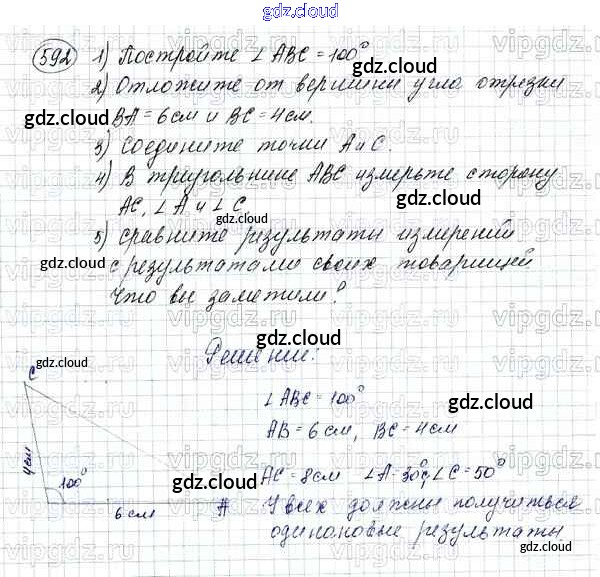 gdz.cloud
592 1) Постройте ∠ ABC = 100°
gdz.cloud
2) Отложите от вершины угла отрезки
gdz.cloud BA = 6 см и BC = 4 см.
3) Соедините точки A и C.
gdz.cloud
4) В треугольнике ABC измерьте сторону
AC, ∠ A и ∠ C.
gdz.cloud
5) Сравните результаты измерений
gdz.cloud
с результатами своих товарищей
Что вы заметили?
gdz.cloud
Решение:
gdz.cloud
C
∠ ABC = 100°
gdz.cloud
AB = 6 см, BC = 4 см
4 см
100°
AC = 8 см ∠A = 30°; ∠ C = 50°
gdz.cloud
A
У всех должны получиться
6 см
одинаковые результаты
gdz.cloud